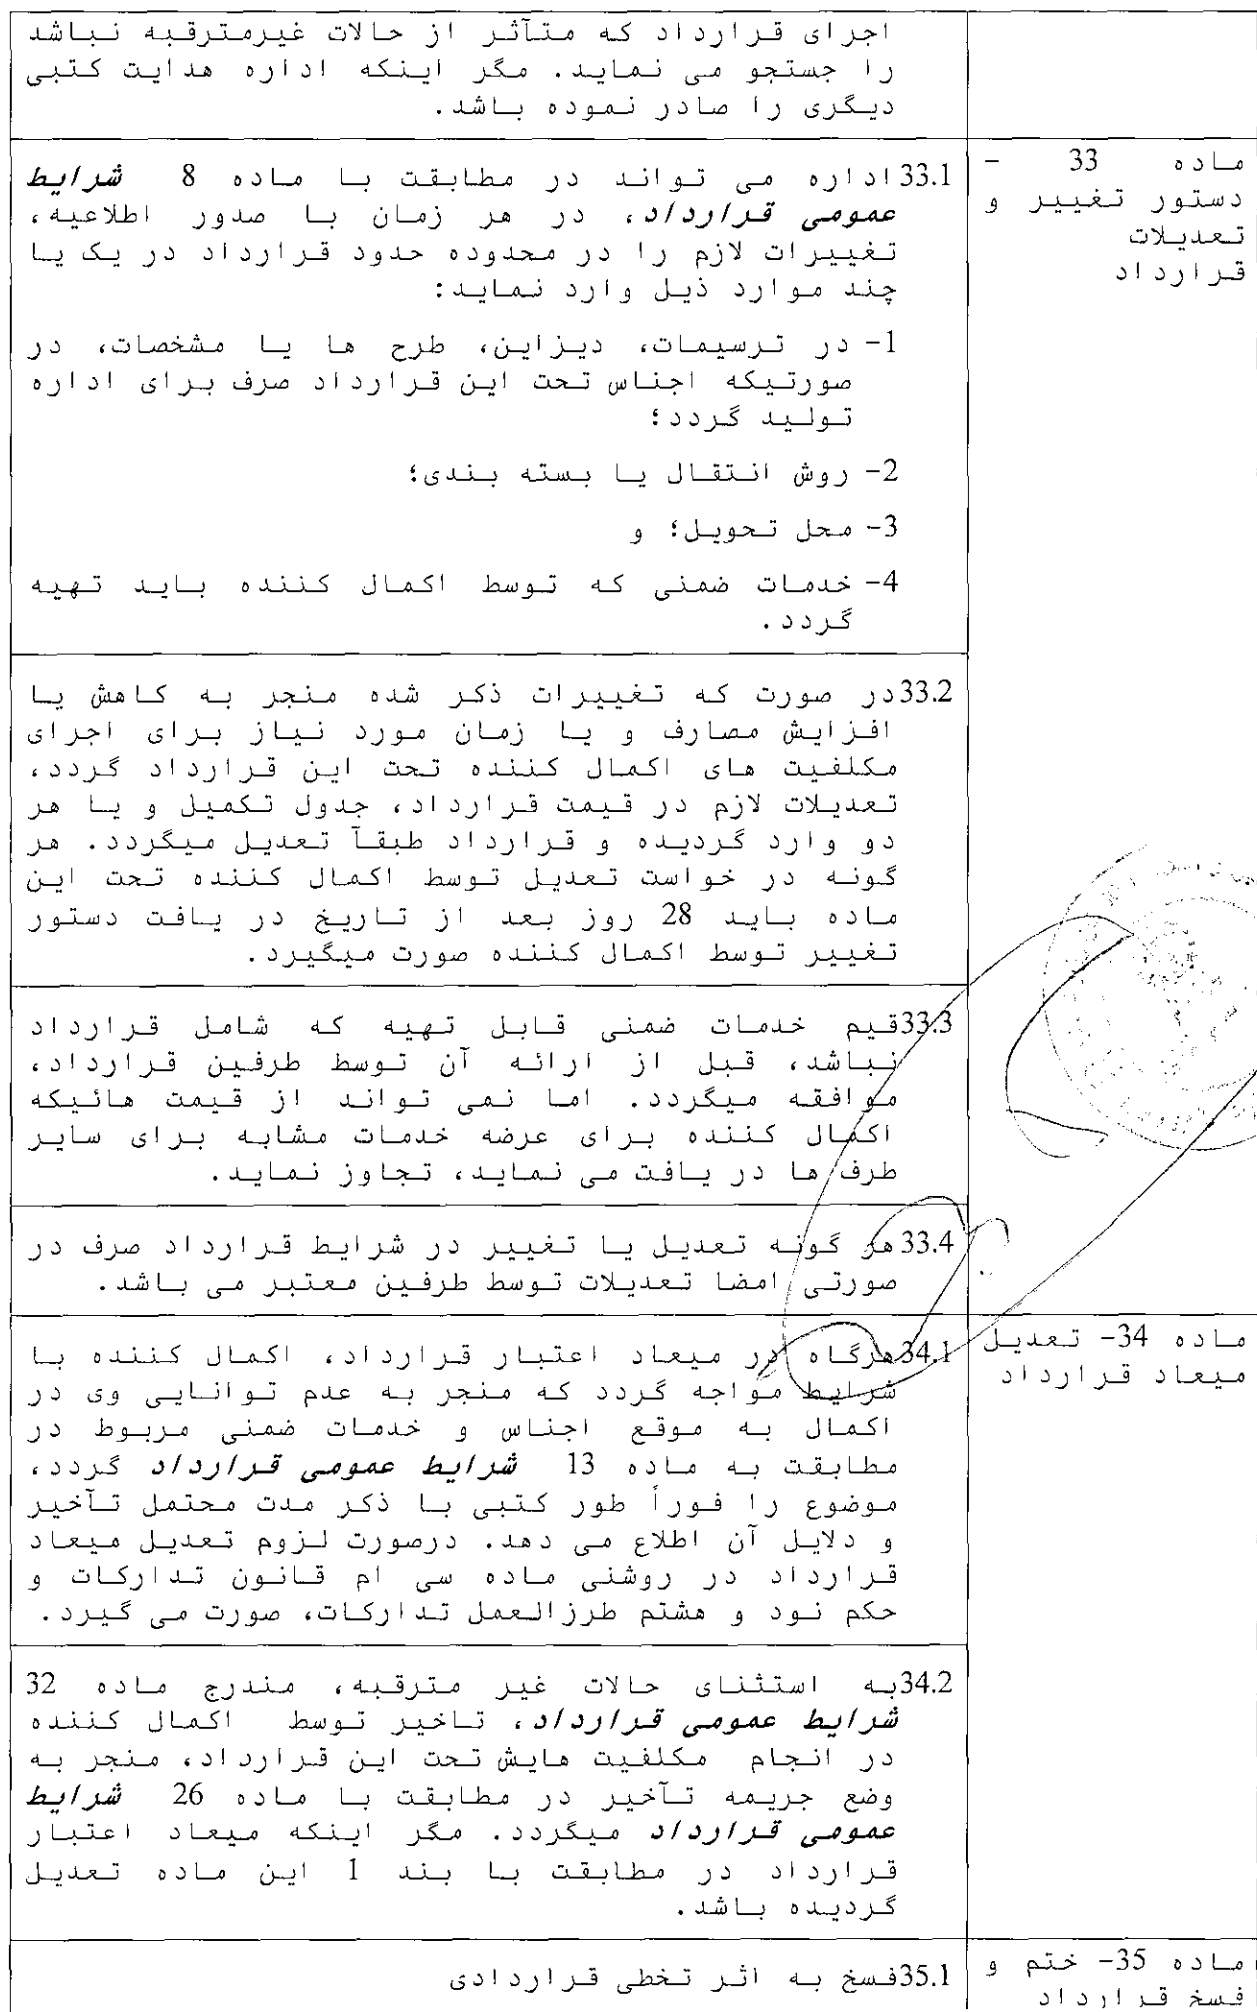 اجرای قرارداد که متآثر از حالات غیرمترقبه نباشد
را جستجو می نماید. مگر اینکه اداره هدایت کتبی
دیگری را صادر نموده باشد.
ماده 33 -
دستور تغییر و
تعدیلات
قرارداد
33.1اداره می تواند در مطابقت با ماده 8 شرایط
عمومی قرارداد، در هر زمان با صدور اطلاعیه،
تغییرات لازم را در محدوده حدود قرارداد در یک یا
چند موارد ذیل وارد نماید:
1- در ترسیمات، دیزاین، طرح ها یا مشخصات، در
صورتیکه اجناس تحت این قرارداد صرف برای اداره
تولید گردد؛
2- روش انتقال یا بسته بندی؛
3- محل تحویل؛ و
4- خدمات ضمنی که توسط اکمال کننده باید تهیه
گردد.
33.2در صورت که تغییرات ذکر شده منجر به کاهش یا
افزایش مصارف و یا زمان مورد نیاز برای اجرای
مکلفیت های اکمال کننده تحت این قرارداد گردد،
تعدیلات لازم در قیمت قرارداد، جدول تکمیل و یا هر
دو وارد گردیده و قرارداد طبقآ تعدیل میگردد. هر
گونه در خواست تعدیل توسط اکمال کننده تحت این
ماده باید 28 روز بعد از تاریخ در یافت دستور
تغییر توسط اکمال کننده صورت میگیرد.
33.3قیم خدمات ضمنی قابل تهیه که شامل قرارداد
نباشد، قبل از ارائه آن توسط طرفین قرارداد،
موافقه میگردد. اما نمی تواند از قیمت هائیکه
اکمال کننده برای عرضه خدمات مشابه برای سایر
طرف ها در یافت می نماید، تجاوز نماید.
33.4هر گونه تعدیل یا تغییر در شرایط قرارداد صرف در
صورتی امضا تعدیلات توسط طرفین معتبر می باشد.
ماده 34- تعدیل
میعاد قرارداد
34.1هرگاه در میعاد اعتبار قرارداد، اکمال کننده با
شرایط مواجه گردد که منجر به عدم توانایی وی در
اکمال به موقع اجناس و خدمات ضمنی مربوط در
مطابقت به ماده 13 شرایط عمومی قرارداد گردد،
موضوع را فوراً طور کتبی با ذکر مدت محتمل تآخیر
و دلایل آن اطلاع می دهد. درصورت لزوم تعدیل میعاد
قرارداد در روشنی ماده سی ام قانون تدارکات و
حکم نود و هشتم طرزالعمل تدارکات، صورت می گیرد.
34.2به استثنای حالات غیر مترقبه، مندرج ماده 32
شرایط عمومی قرارداد، تاخیر توسط اکمال کننده
در انجام مکلفیت هایش تحت این قرارداد، منجر به
وضع جریمه تآخیر در مطابقت با ماده 26 شرایط
عمومی قرارداد میگردد. مگر اینکه میعاد اعتبار
قرارداد در مطابقت با بند 1 این ماده تعدیل
گردیده باشد.
ماده 35- ختم و
فسخ قرارداد
35.1فسخ به اثر تخطی قراردادی